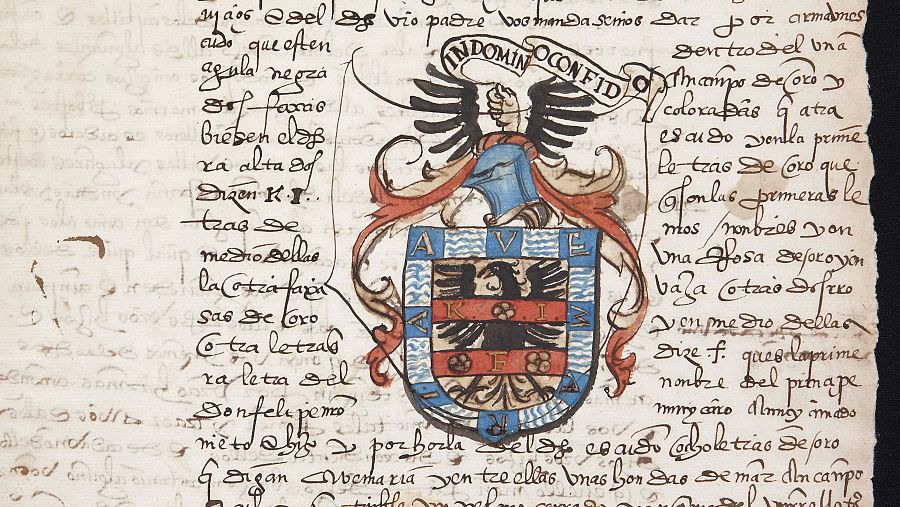 del dho vro padre vos mandasemos dar por armas
IN DOMINO CONFIDO
cudo que esten dentro del una
aguila negra en campo de oro y
dos faxas coloradas q atra
biesen el dho escudo y en la prime
ra alta dos letras de oro que
dizen K.I. q son las primeras le
tras de nros nonbres y en
medio dellas una Rosa de oro y en
la otra faxa baxa otras dos rro
sas de oro y en medio dellas
otra letra dize .f. ques la prime
ra letra del nonbre del principe
don felipe nro muy caro & muy amado
nieto & hijo y por horla del dho escudo ocho letras de oro
q digan Avemaria y entre ellas unas hondas de mar en campo
A V E
K I
A M
F
I A
R